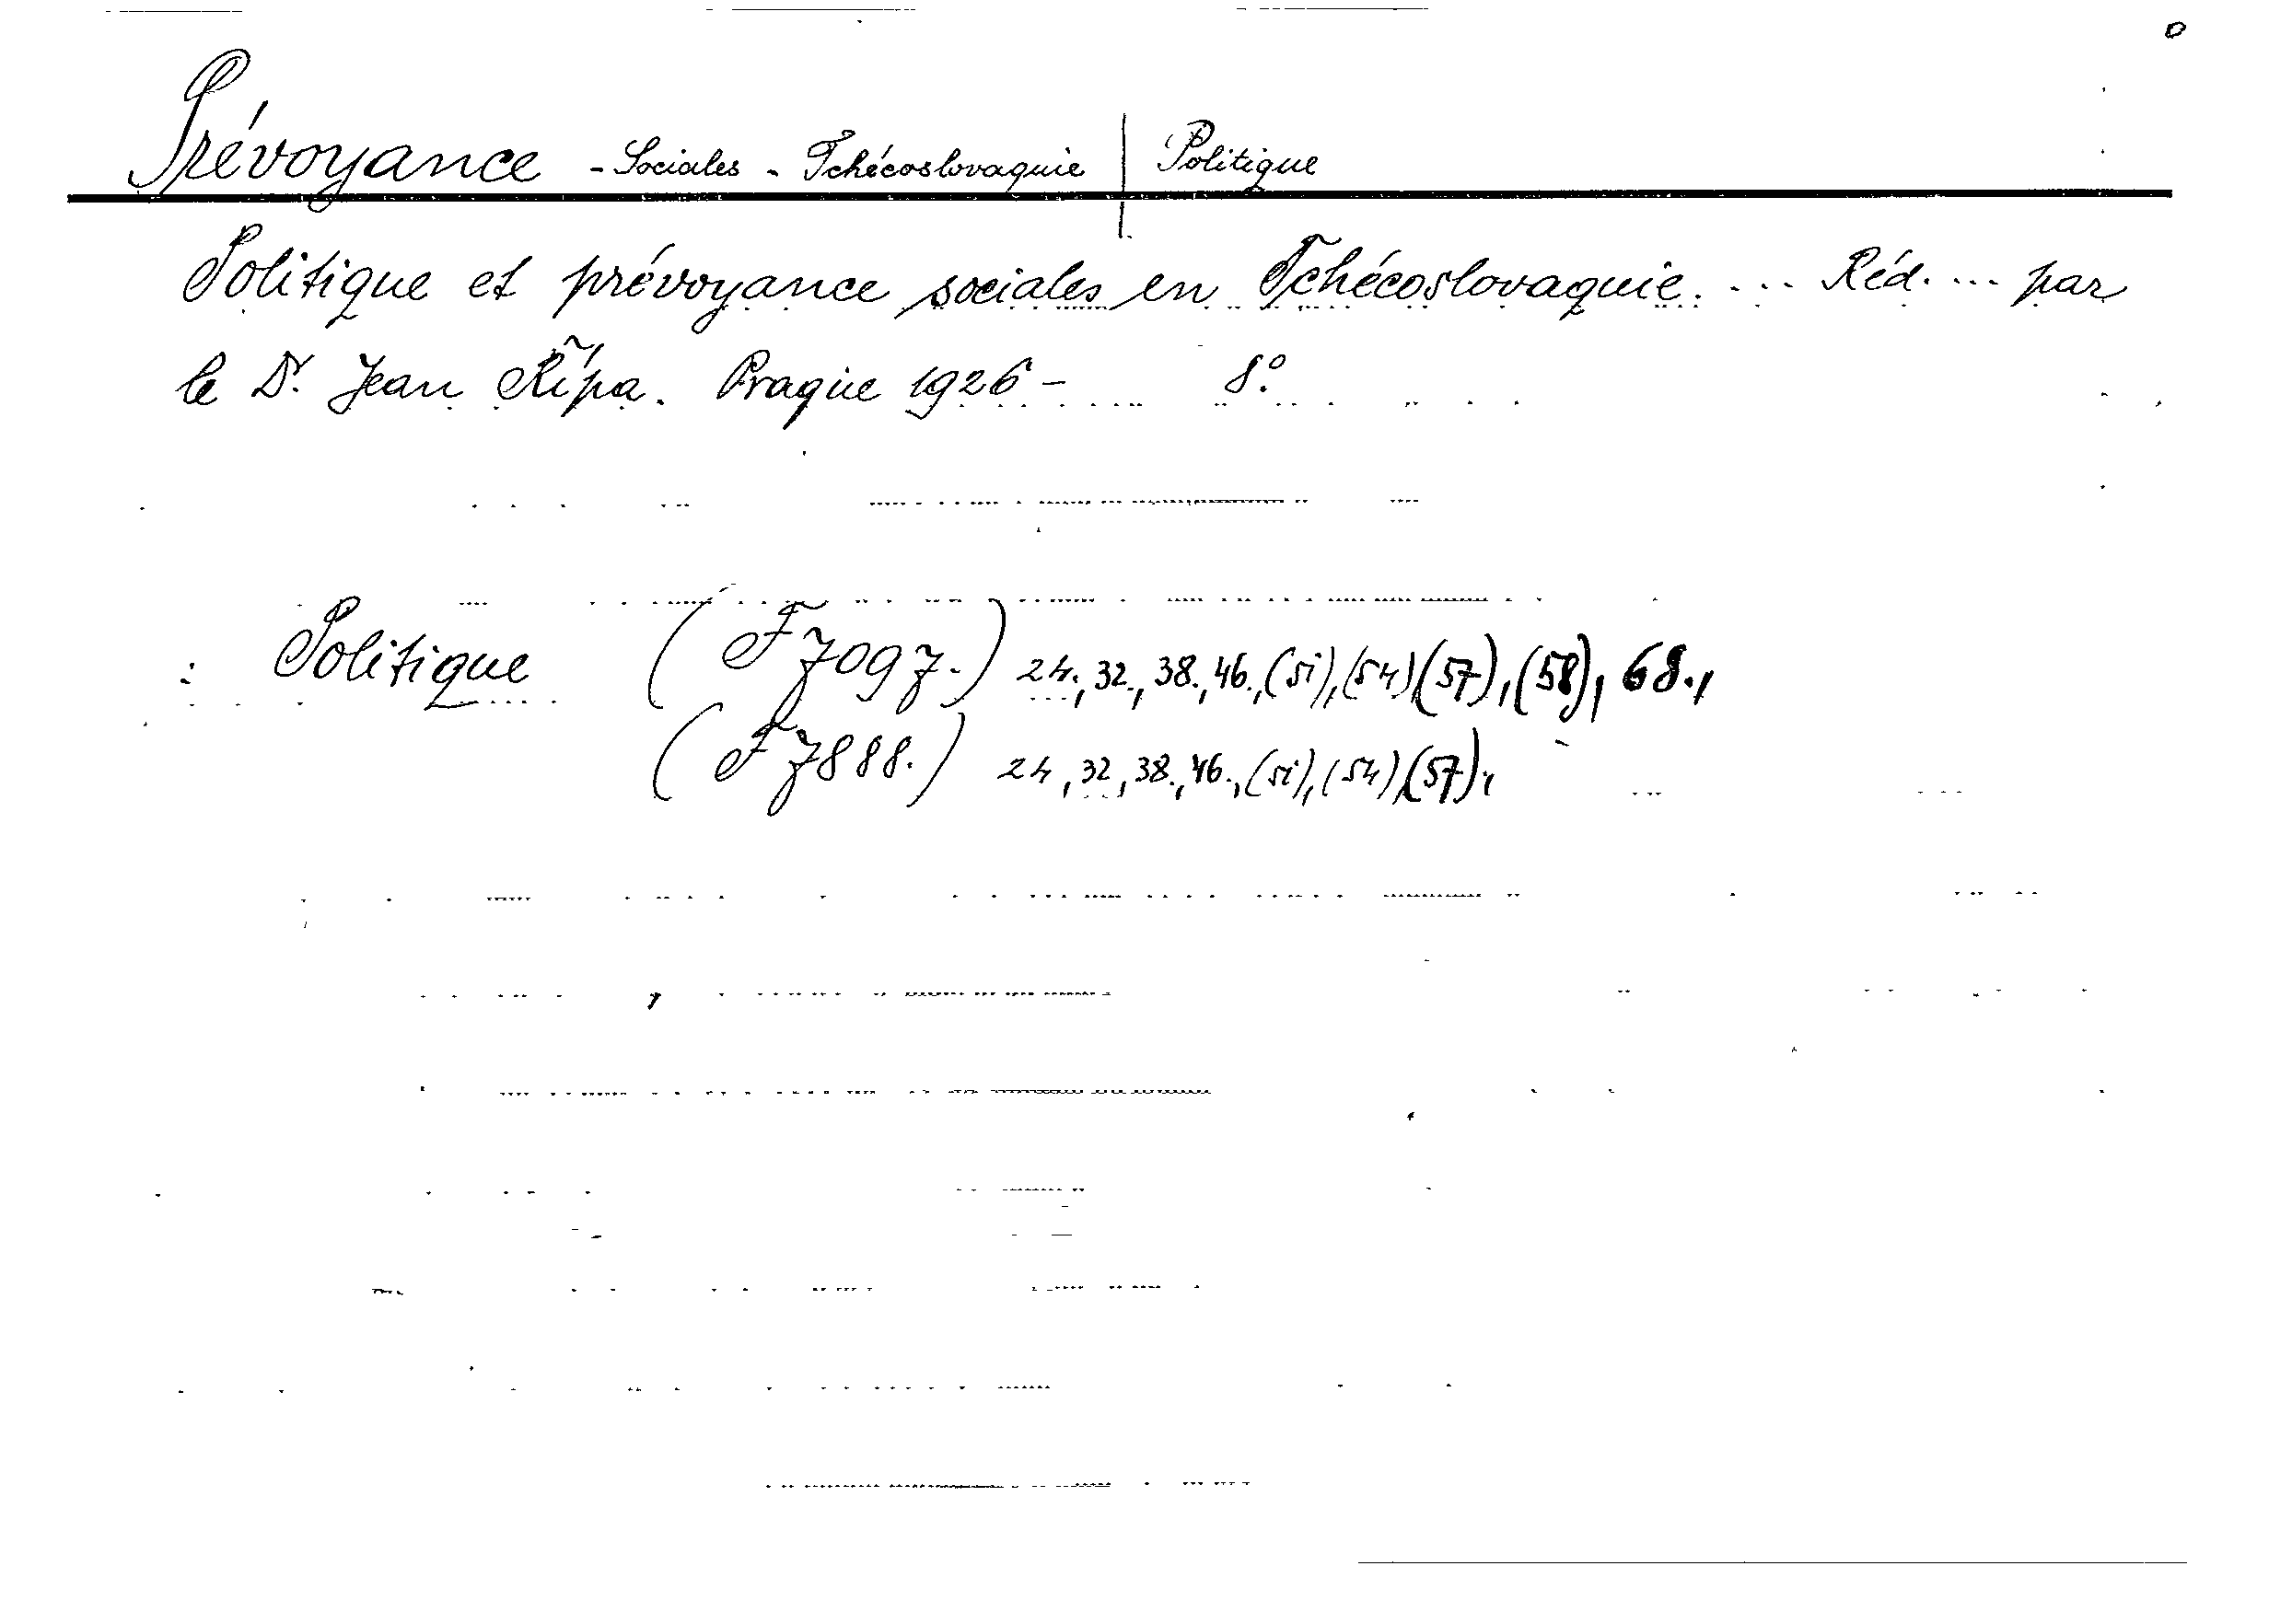 Prévoyance - Sociales - Tchécoslovaquie | Politique
Politique et prévoyance sociales en Tchécoslovaquie. ... Réd. ... par
le Dr. Jean Řípa. Prague 1926 - 8°.
: Politique (F 7097.) 24., 32., 38., 46., (51), (54) (57), (58), 68.,
(F 7888.) 24, 32, 38., 46., (51), (54), (57).,